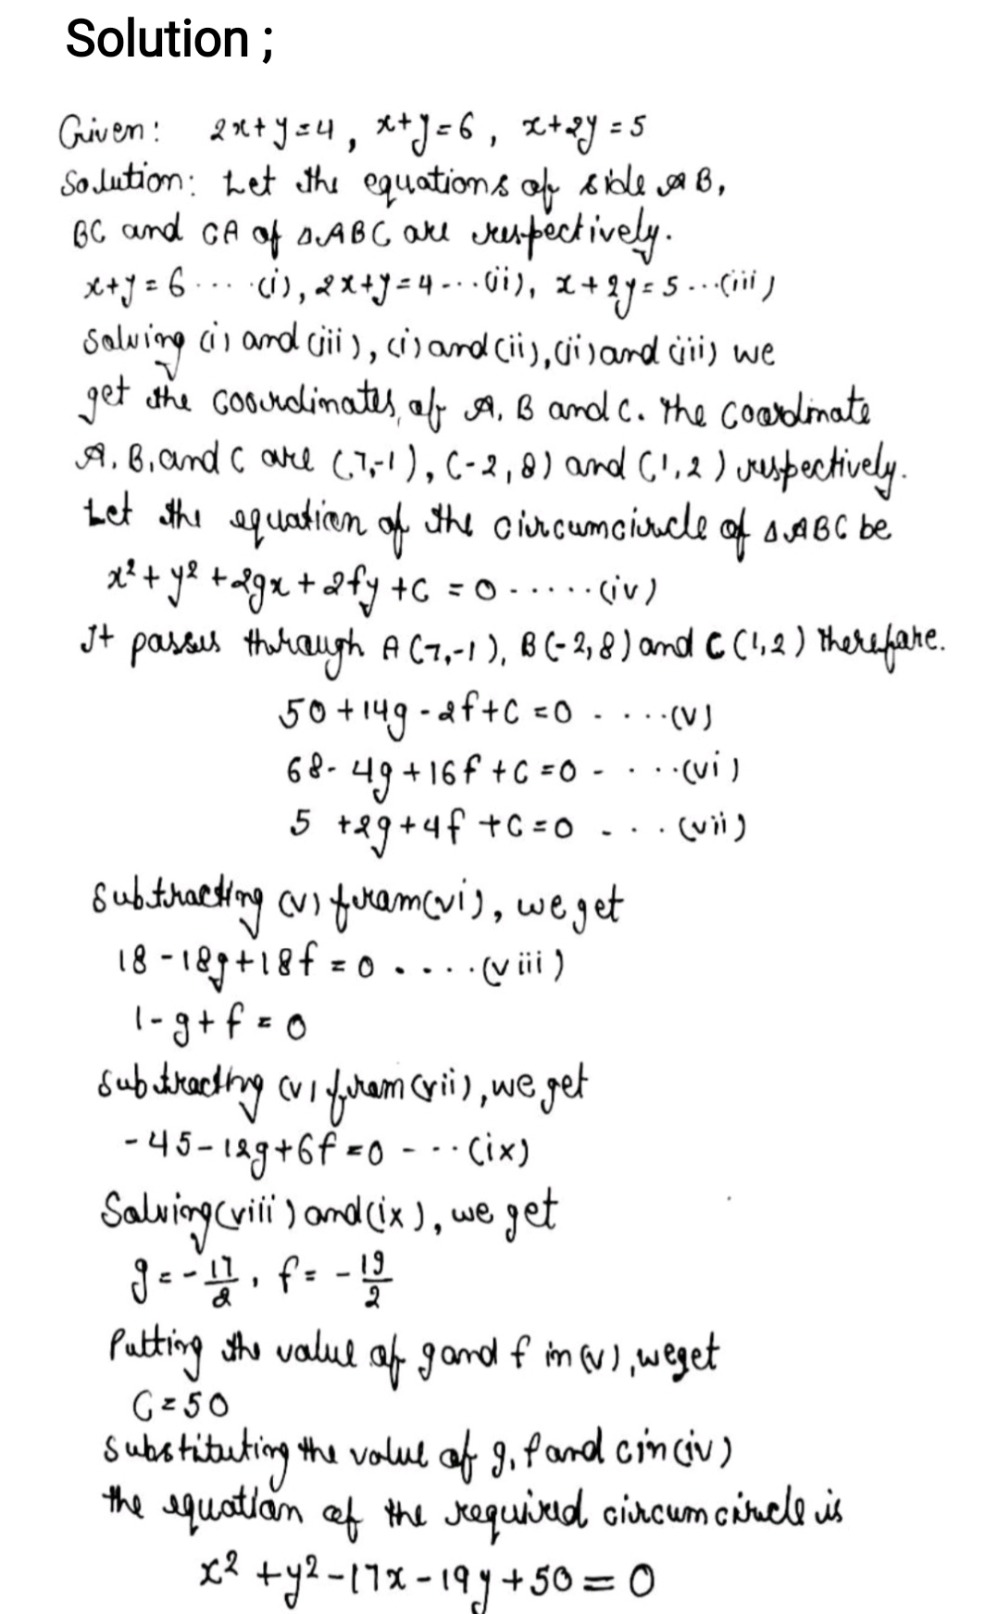 Solution ;
Given: 2x+y=4, x+y=6, x+2y=5
Solution: Let the equations of side AB,
BC and CA of ΔABC are respectively.
x+y=6 ... (i), 2x+y=4 ... (ii), x+2y=5 ... (iii)
Solving (i) and (iii), (i) and (ii), (ii) and (iii) we
get the coordinates of A, B and C. The coordinate
A, B, and C are (7,-1), (-2,8) and (1,2) respectively.
Let the equation of the circumcircle of ΔABC be
x²+y²+2gx+2fy+c=0 ...... (iv)
It passes through A(7,-1), B(-2,8) and C(1,2) therefore.
50+14g-2f+c=0 ..... (v)
68-4g+16f+c=0 ..... (vi)
5+2g+4f+c=0 .... (vii)
Subtracting (v) from (vi), we get
18-18g+18f=0 ..... (viii)
1-g+f=0
Subtracting (v) from (vii), we get
-45-12g+6f=0 .... (ix)
Solving (viii) and (ix), we get
g=-17/2, f=-19/2
Putting the value of g and f in (v), we get
C=50
Substituting the value of g, f and c in (iv)
the equation of the required circumcircle is
x²+y²-17x-19y+50=0